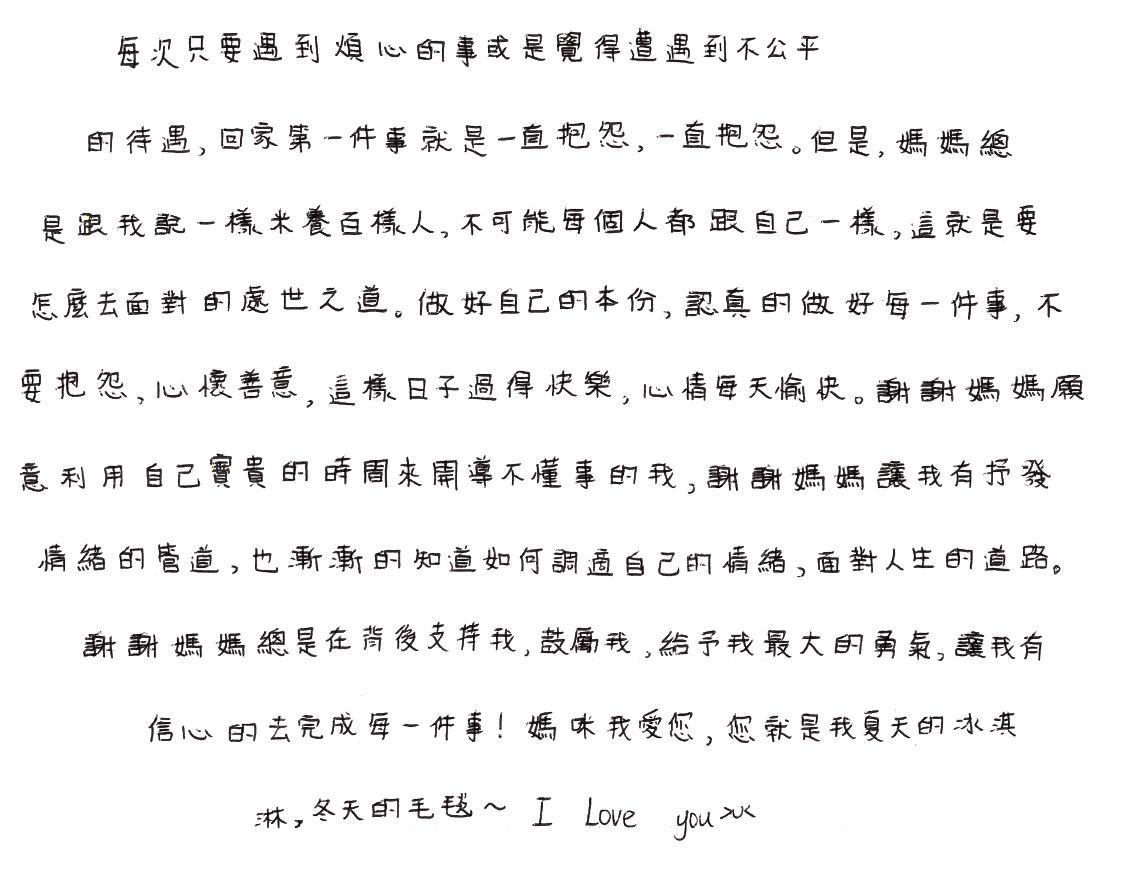 每次只要遇到煩心的事或是覺得遭遇到不公平
的待遇,回家第一件事就是一直抱怨,一直抱怨。但是,媽媽總
是跟我說一樣米養百樣人,不可能每個人都跟自己一樣,這就是要
怎麼去面對的處世之道。做好自己的本份,認真的做好每一件事,不
要抱怨,心懷善意,這樣日子過得快樂,心情每天愉快。謝謝媽媽願
意利用自己寶貴的時間來開導不懂事的我,謝謝媽媽讓我有抒發
情緒的管道,也漸漸的知道如何調適自己的情緒,面對人生的道路。
謝謝媽媽總是在背後支持我,鼓勵我,給予我最大的勇氣,讓我有
信心的去完成每一件事!媽咪我愛您,您就是我夏天的冰淇
淋,冬天的毛毯~ I Love you>x<